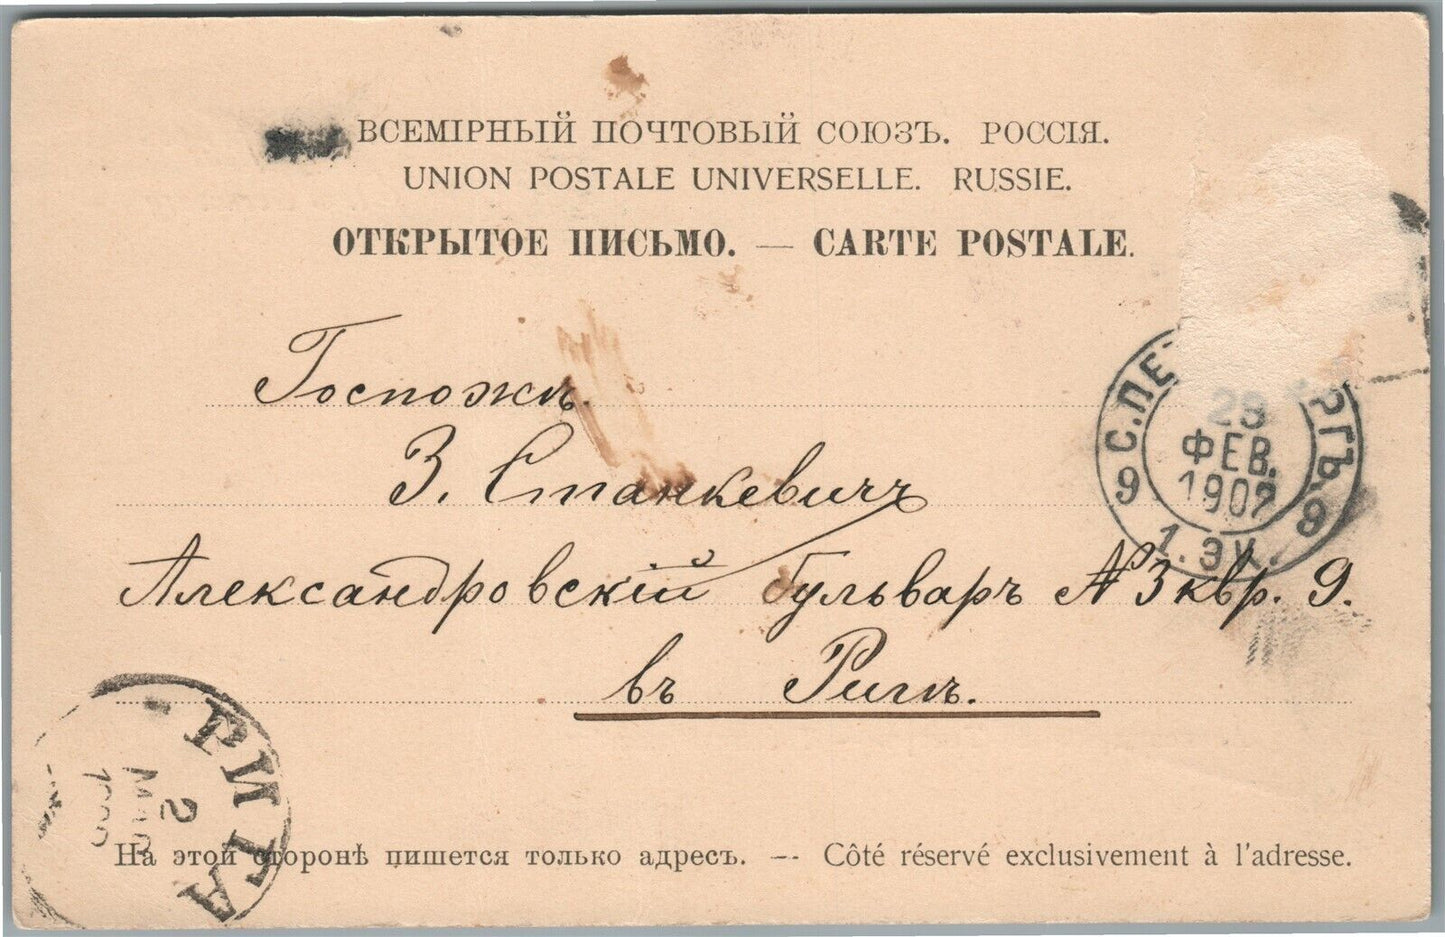 ВСЕМІРНЫЙ ПОЧТОВЫЙ СОЮЗЪ. РОССІЯ.
UNION POSTALE UNIVERSELLE. RUSSIE.
ОТКРЫТОЕ ПИСЬМО. — CARTE POSTALE.
Госпожѣ.
З. Станкевичъ
Александровскій бульваръ № 3 квр. 9.
въ Ригѣ.
ФЕВ.
1902
9 9
1. ЭК.
РИГА
2
На этой сторонѣ пишется только адресъ. — Côté réservé exclusivement à l'adresse.